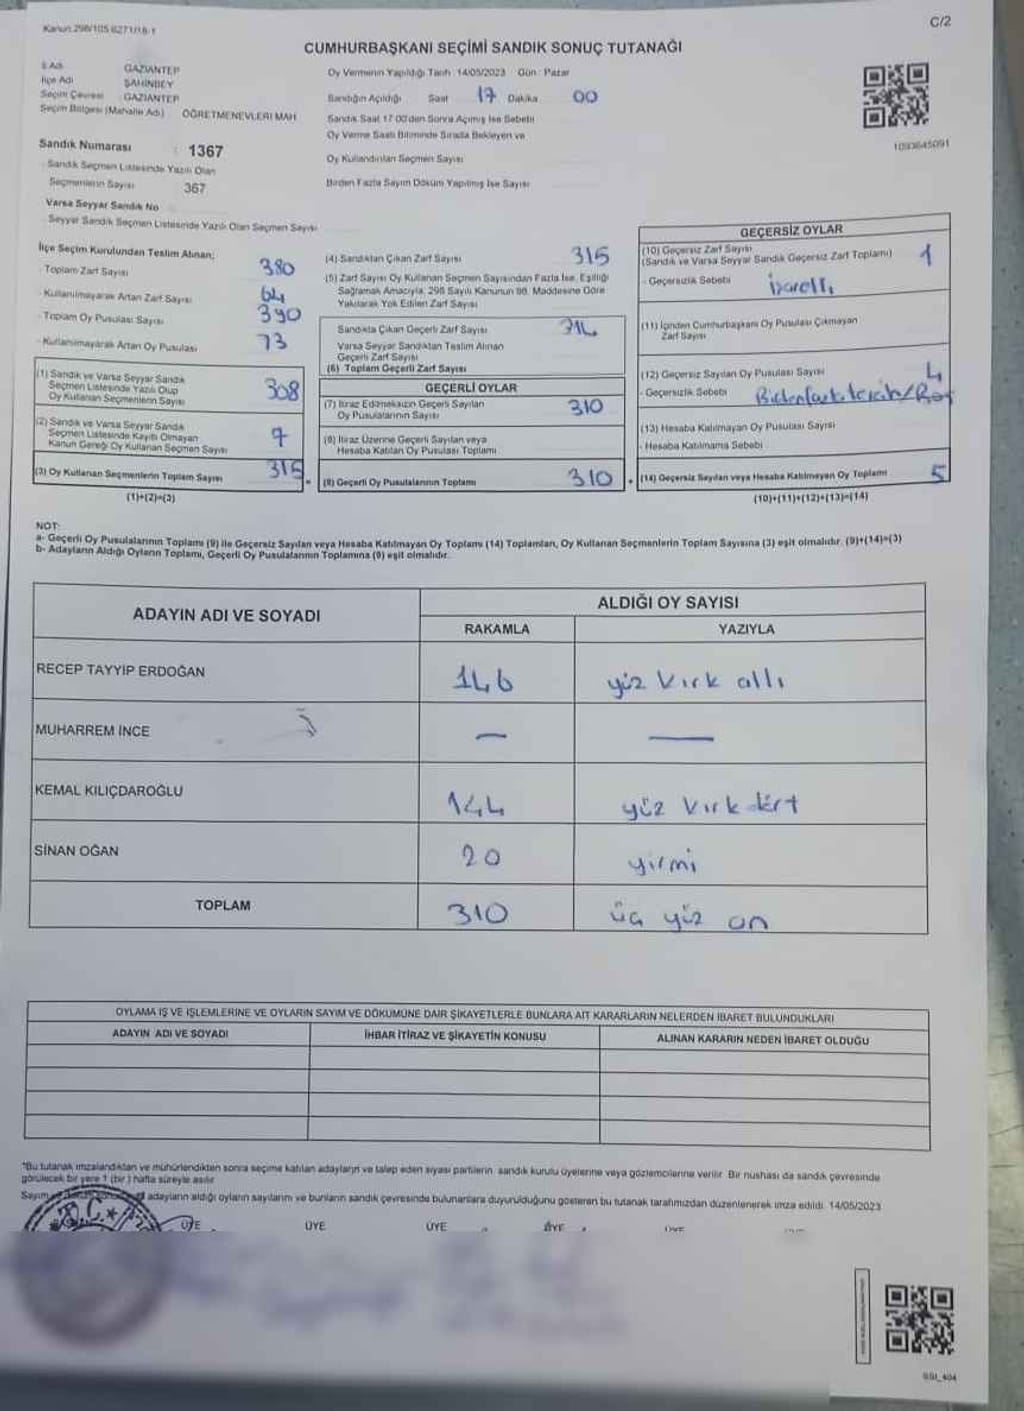 Kanun 298/105 6271/18-1
C/2
CUMHURBAŞKANI SEÇİMİ SANDIK SONUÇ TUTANAĞI
İl Adı GAZİANTEP
İlçe Adı ŞAHİNBEY
Seçim Çevresi GAZİANTEP
Seçim Bölgesi (Mahalle Adı) ÖĞRETMENEVLERİ MAH
Sandık Numarası : 1367
Sandık Seçmen Listesinde Yazılı Olan
Seçmenlerin Sayısı 367
Varsa Seyyar Sandık No
Seyyar Sandık Seçmen Listesinde Yazılı Olan Seçmen Sayısı
Oy Vermenin Yapıldığı Tarih : 14/05/2023 Gün : Pazar
Sandığın Açıldığı Saat 17 Dakika 00
Sandık Saat 17:00'den Sonra Açılmış İse Sebebi
Oy Verme Saati Bitiminde Sırada Bekleyen ve
Oy Kullandırılan Seçmen Sayısı
Birden Fazla Sayım Döküm Yapılmış İse Sayısı
1093645091
İlçe Seçim Kurulundan Teslim Alınan;
- Toplam Zarf Sayısı 380
- Kullanılmayarak Artan Zarf Sayısı 64
- Toplam Oy Pusulası Sayısı 390
- Kullanılmayarak Artan Oy Pusulası 73
(1) Sandık ve Varsa Seyyar Sandık
Seçmen Listesinde Yazılı Olup
Oy Kullanan Seçmenlerin Sayısı 308
(2) Sandık ve Varsa Seyyar Sandık
Seçmen Listesinde Kayıtlı Olmayan
Kanun Gereği Oy Kullanan Seçmen Sayısı 7
(3) Oy Kullanan Seçmenlerin Toplam Sayısı 315
(1)+(2)=(3)
(4) Sandıktan Çıkan Zarf Sayısı 315
(5) Zarf Sayısı Oy Kullanan Seçmen Sayısından Fazla İse, Eşitliği
Sağlamak Amacıyla, 298 Sayılı Kanunun 98. Maddesine Göre
Yakılarak Yok Edilen Zarf Sayısı
Sandıkta Çıkan Geçerli Zarf Sayısı 314
Varsa Seyyar Sandıktan Teslim Alınan
Geçerli Zarf Sayısı
(6) Toplam Geçerli Zarf Sayısı
GEÇERLİ OYLAR
(7) İtiraz Edilmeksizin Geçerli Sayılan
Oy Pusulalarının Sayısı 310
(8) İtiraz Üzerine Geçerli Sayılan veya
Hesaba Katılan Oy Pusulası Toplamı
(9) Geçerli Oy Pusulalarının Toplamı 310
GEÇERSİZ OYLAR
(10) Geçersiz Zarf Sayısı
(Sandık ve Varsa Seyyar Sandık Geçersiz Zarf Toplamı) 1
- Geçersizlik Sebebi
(11) İçinden Cumhurbaşkanı Oy Pusulası Çıkmayan
Zarf Sayısı
(12) Geçersiz Sayılan Oy Pusulası Sayısı 4
- Geçersizlik Sebebi Birden fazla tercih/Boş
(13) Hesaba Katılmayan Oy Pusulası Sayısı
- Hesaba Katılmama Sebebi
(14) Geçersiz Sayılan veya Hesaba Katılmayan Oy Toplamı 5
(10)+(11)+(12)+(13)=(14)
NOT:
a- Geçerli Oy Pusulalarının Toplamı (9) ile Geçersiz Sayılan veya Hesaba Katılmayan Oy Toplamı (14) Toplamları, Oy Kullanan Seçmenlerin Toplam Sayısına (3) eşit olmalıdır. (9)+(14)=(3)
b- Adayların Aldığı Oyların Toplamı, Geçerli Oy Pusulalarının Toplamına (9) eşit olmalıdır.
ADAYIN ADI VE SOYADI
ALDIĞI OY SAYISI
RAKAMLA YAZIYLA
RECEP TAYYİP ERDOĞAN 146 yüz kırk altı
MUHARREM İNCE — —
KEMAL KILIÇDAROĞLU 144 yüz kırk dört
SİNAN OĞAN 20 yirmi
TOPLAM 310 üç yüz on
OYLAMA İŞ VE İŞLEMLERİNE VE OYLARIN SAYIM VE DÖKÜMÜNE DAİR ŞİKAYETLERLE BUNLARA AİT KARARLARIN NELERDEN İBARET BULUNDUKLARI
ADAYIN ADI VE SOYADI İHBAR İTİRAZ VE ŞİKAYETİN KONUSU ALINAN KARARIN NEDEN İBARET OLDUĞU
*Bu tutanak imzalandıktan ve mühürlendikten sonra seçime katılan adayların ve talep eden siyasi partilerin sandık kurulu üyelerine veya gözlemcilerine verilir. Bir nüshası da sandık çevresinde
görülecek bir yere 1 (bir) hafta süreyle asılır
Sayım adayların aldığı oyların sayılarını ve bunların sandık çevresinde bulunanlara duyurulduğunu gösteren bu tutanak tarafımızdan düzenlenerek imza edildi. 14/05/2023
T.C.
ÜYE ÜYE ÜYE ÜYE ÜYE
SSI_404